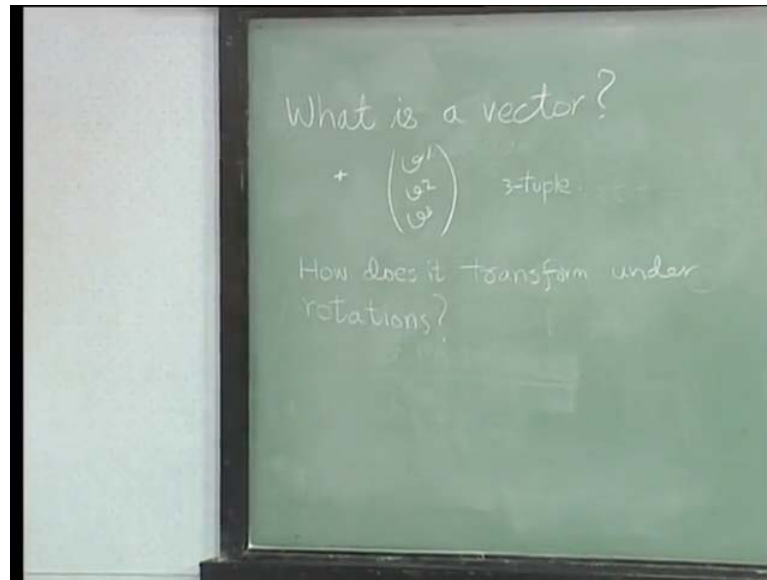 What is a vector?
+ (v1 v2 v3) 3-tuple.
How does it transform under
rotations?